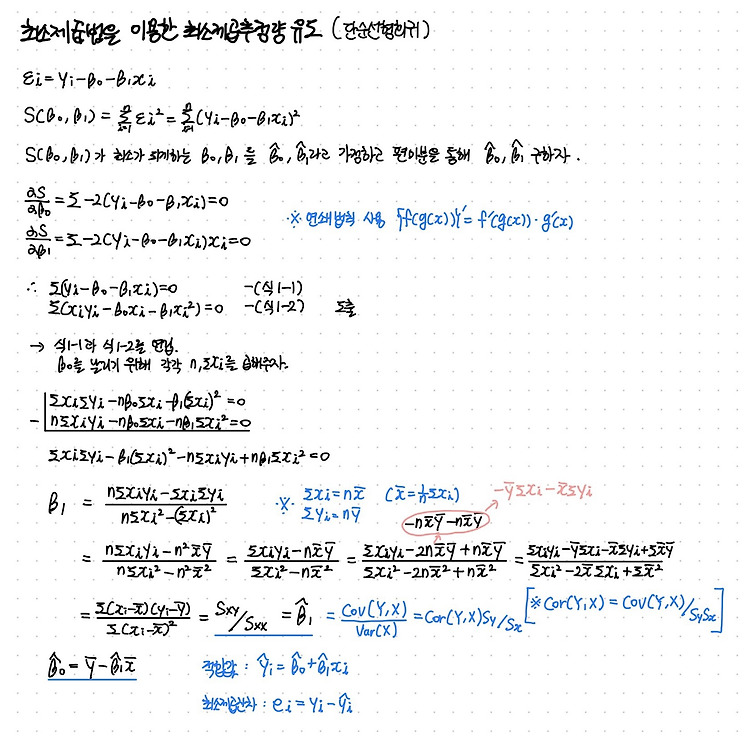 최소제곱법을 이용한 최소제곱추정량 유도 (단순선형회귀)
εi = yi-β₀-β₁xi
S(β₀, β₁) = Σᵢ₌₁ⁿ εi² = Σᵢ₌₁ⁿ (yi-β₀-β₁xi)²
S(β₀, β₁)가 최소가 되게하는 β₀, β₁을 β̂₀, β̂₁라고 가정하고 편미분을 통해 β̂₀, β̂₁ 구하자.
∂S/∂β₀ = Σ -2(yi-β₀-β₁xi)=0
※ 연쇄법칙 사용 {f(g(x))}' = f'(g(x))·g'(x)
∂S/∂β₁ = Σ -2(yi-β₀-β₁xi)xi=0
∴ Σ(yi-β₀-β₁xi)=0 -(식1-1)
Σ(xiyi-β₀xi-β₁xi²)=0 -(식1-2) 도출
→ 식1-1과 식1-2를 연립.
β₀를 날리기 위해 각각 n, Σxi를 곱해주자.
ΣxiΣyi-nβ₀Σxi-β₁(Σxi)²=0
- nΣxiyi-nβ₀Σxi-nβ₁Σxi²=0
ΣxiΣyi-β₁(Σxi)²-nΣxiyi+nβ₁Σxi²=0
β₁ = (nΣxiyi-ΣxiΣyi)/(nΣxi²-(Σxi)²) ※ Σxi=nx̄ (x̄=1/n Σxi)
Σyi=nȳ
-nx̄ȳ-nx̄ȳ -ȳΣxi-x̄Σyi
= (nΣxiyi-n²x̄ȳ)/(nΣxi²-n²x̄²) = (Σxiyi-nx̄ȳ)/(Σxi²-nx̄²) = (Σxiyi-2nx̄ȳ+nx̄ȳ)/(Σxi²-2nx̄²+nx̄²) = (Σxiyi-ȳΣxi-x̄Σyi+Σx̄ȳ)/(Σxi²-2x̄Σxi+Σx̄²)
= Σ(xi-x̄)(yi-ȳ)/Σ(xi-x̄)² = Sxy/Sxx = β̂₁ = Cov(Y,X)/Var(X) = Cor(Y,X)Sy/Sx [※Cor(Y,X) = Cov(Y,X)/SySx]
β̂₀ = ȳ-β̂₁x̄ 적합값 : ŷi = β̂₀+β̂₁xi
최소제곱잔차 : ei = yi-ŷi